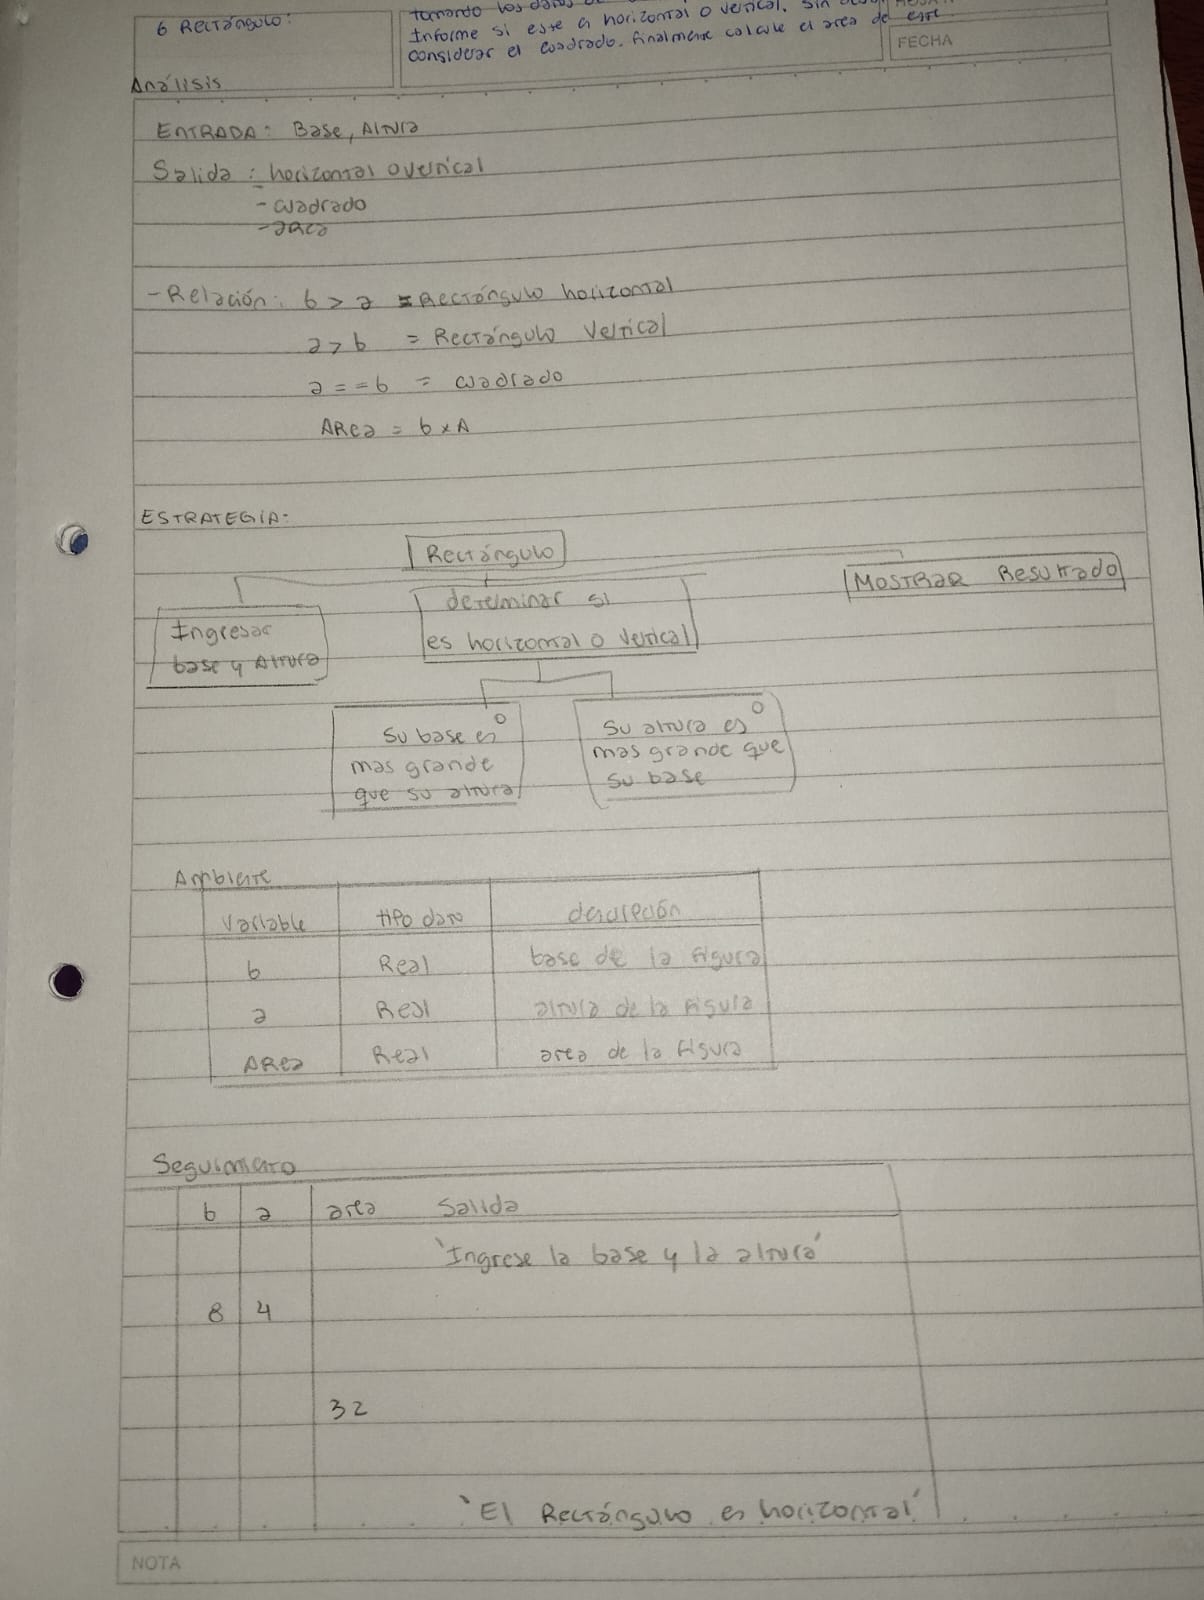 6 Rectángulo:
tomando los datos de
Informe si este es horizontal o vertical. sin
considerar el cuadrado. finalmente calcule el area de este
FECHA
Análisis
ENTRADA: Base, Altura
Salida: horizontal o vertical
- cuadrado
- area
- Relación: b > a = Rectángulo horizontal
a > b = Rectángulo Vertical
a == b = cuadrado
Area = b x A
ESTRATEGIA:
Rectángulo
Ingresar
base y Altura
determinar si
es horizontal o Vertical
MOSTRAR Resultado
Su base es o
mas grande
que su altura
Su altura es o
mas grande que
su base
Ambiente
Variable tipo dato descripción
b Real base de la figura
a Real altura de la figura
Area Real area de la figura
Seguimiento
b a area Salida
'Ingrese la base y la altura'
8 4
32
'El Rectángulo es horizontal'
NOTA